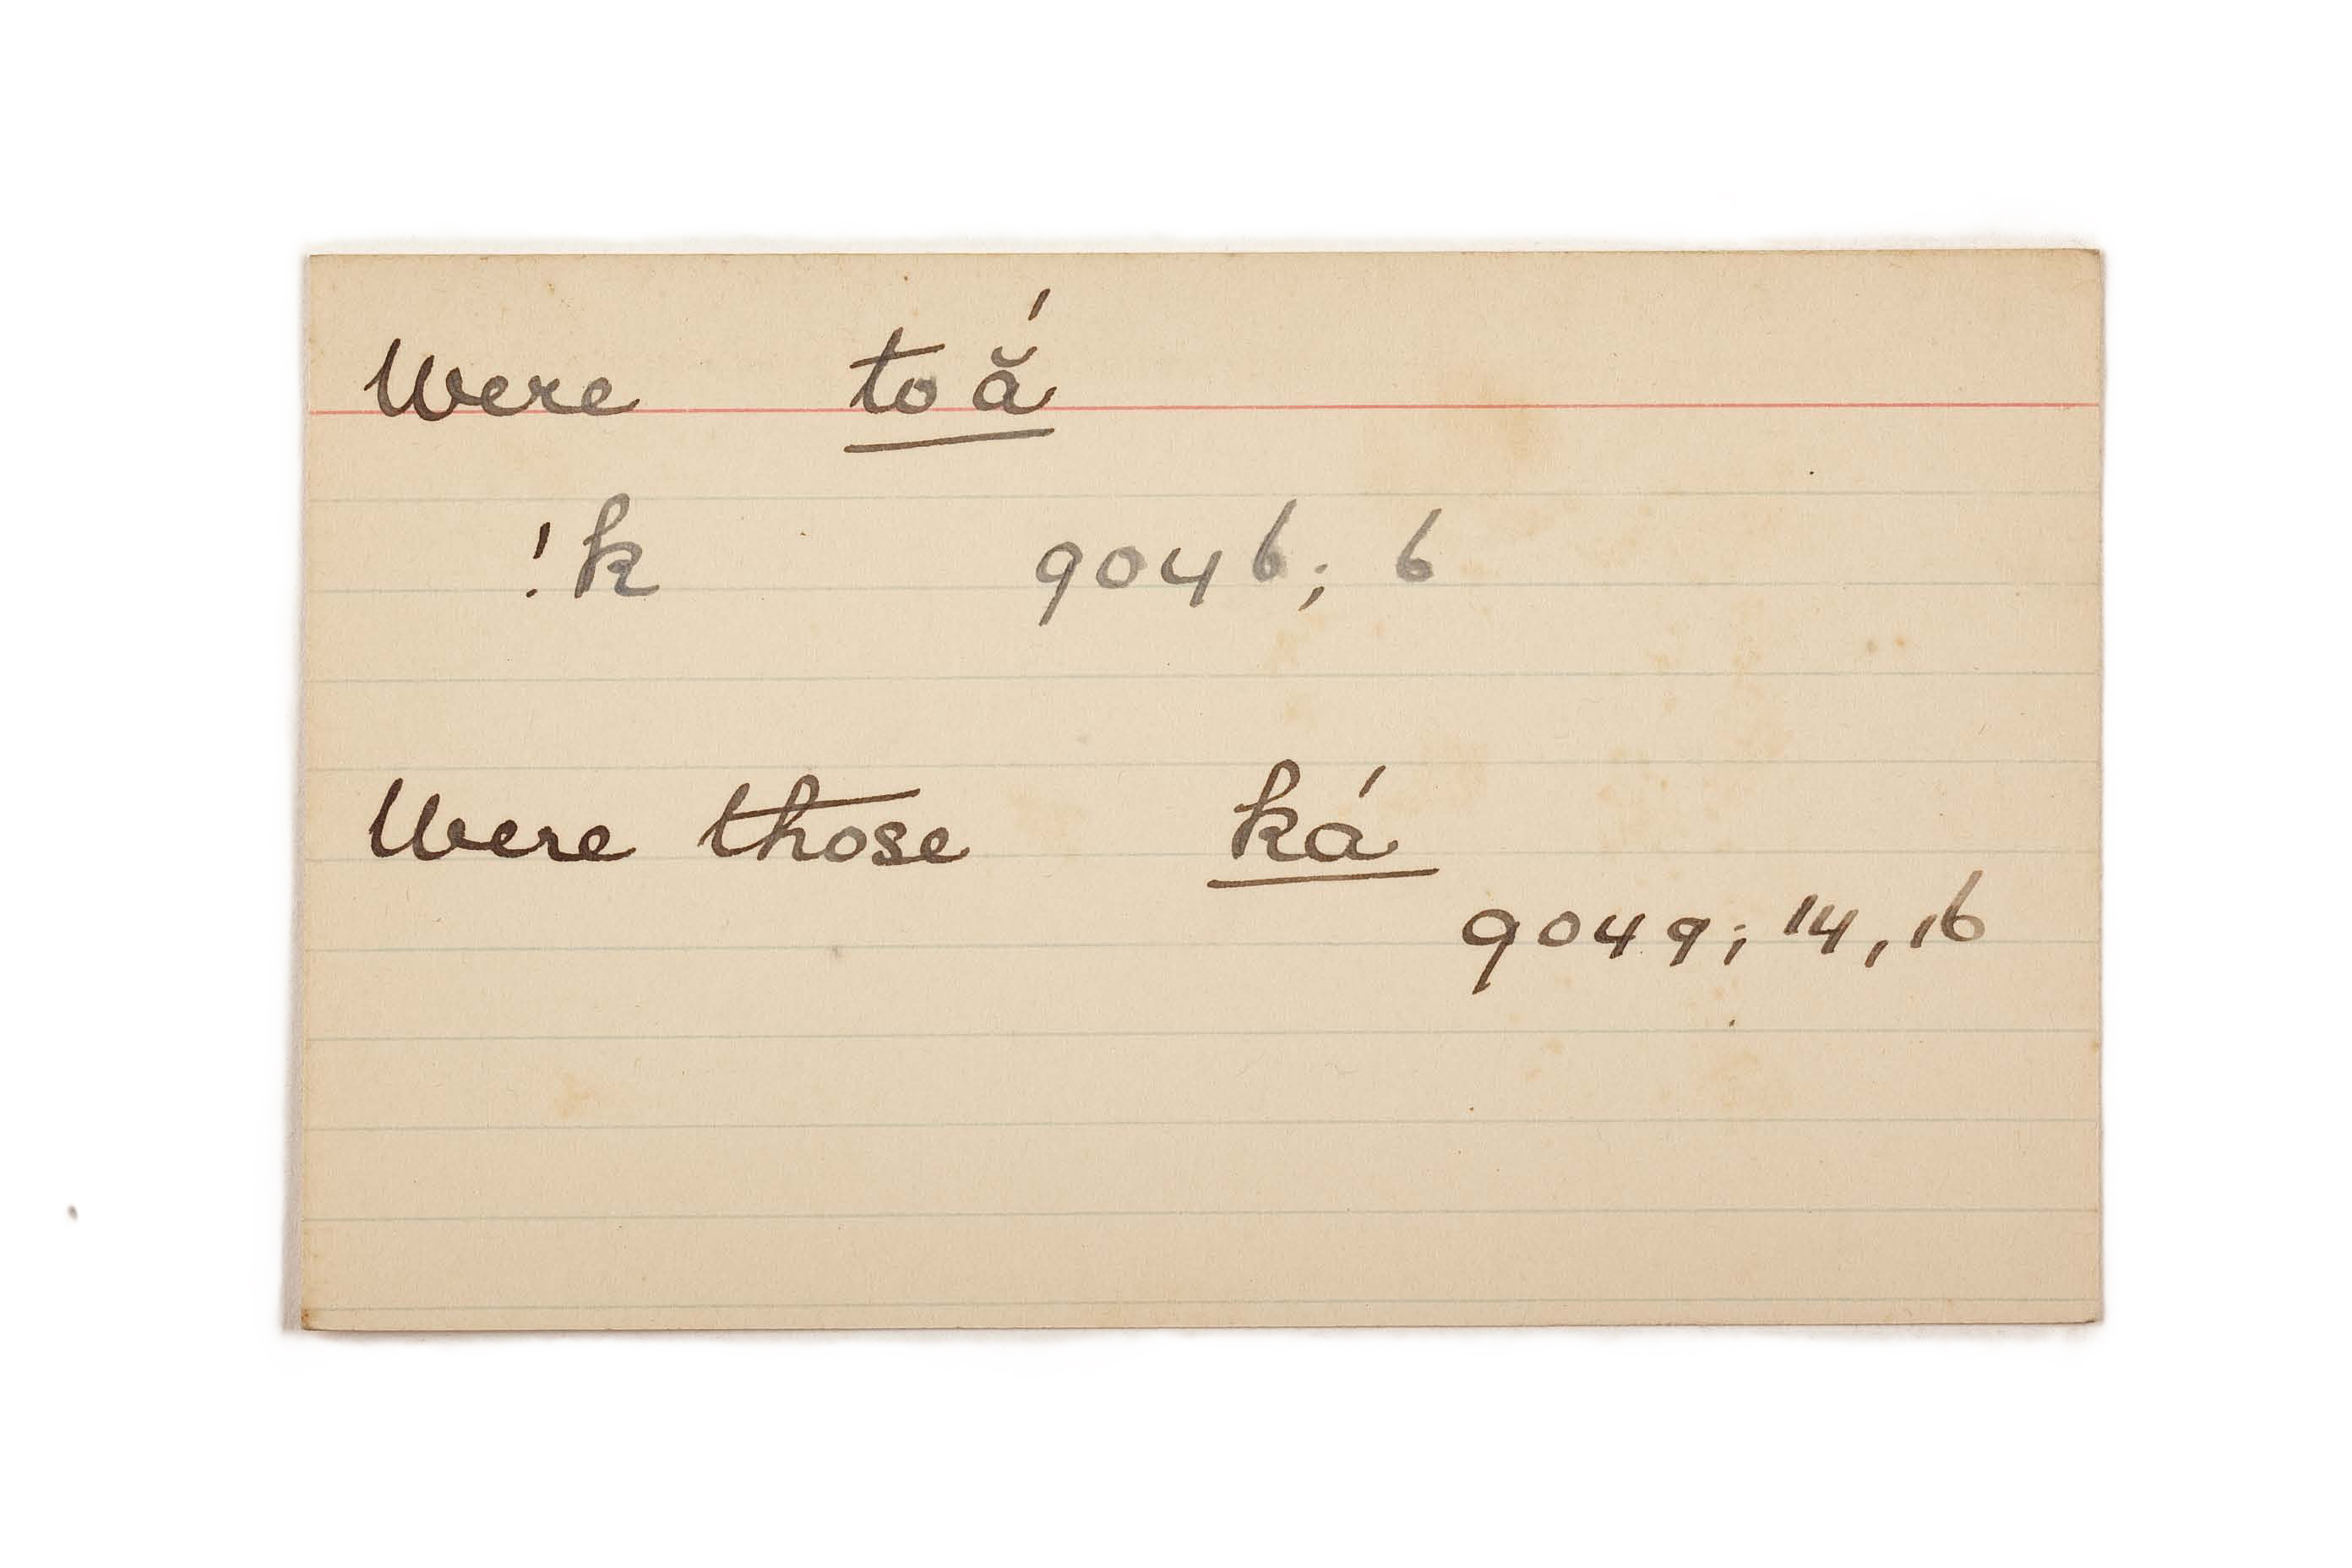 Were toắ
!k 9046; 6
Were those ká
9049; 14, 16